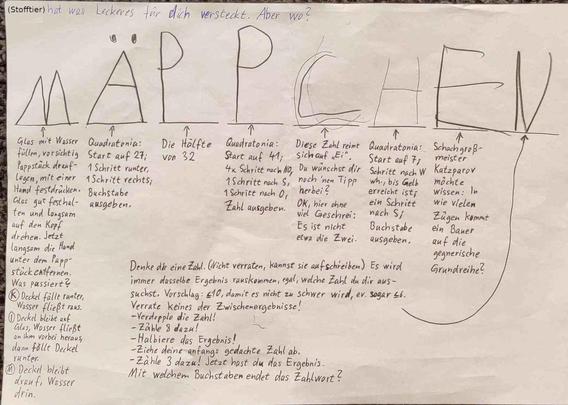 (Stofftier) hat was Leckeres für dich versteckt. Aber wo?
MÄPPCHEN
Glas mit Wasser
füllen, vorsichtig
Pappstück drauf-
legen, mit einer
Hand festdrücken.
Glas gut festhal-
ten und langsam
auf den Kopf
drehen. Jetzt
langsam die Hand
unter dem Papp-
stück entfernen.
Was passiert?
(K) Deckel fällt runter,
Wasser fließt raus.
(I) Deckel bleibt auf
Glas, Wasser fließt
an ihm vorbei heraus,
dann fällt Deckel
runter.
(M) Deckel bleibt
drauf, Wasser
drin.
Quadratonia:
Start auf 27;
1 Schritt runter,
1 Schritt rechts;
Buchstabe
ausgeben.
Die Hälfte
von 32
Quadratonia:
Start auf 41;
4x Schritt nach NO,
1 Schritt nach S,
1 Schritt nach O;
Zahl ausgeben.
Diese Zahl reimt
sich auf "Ei".
Du wünschst dir
noch 'nen Tipp
herbei?
OK, hier ohne
viel Geschrei:
Es ist nicht
etwa die Zwei.
Quadratonia:
Start auf 7;
Schritt nach W
wh., bis Gelb
erreicht ist;
ein Schritt
nach S;
Buchstabe
ausgeben.
Schachgroß-
meister
Katzparov
möchte
wissen: In
wie vielen
Zügen kommt
ein Bauer
auf die
gegnerische
Grundreihe?
Denke dir eine Zahl. (Nicht verraten, kannst sie aufschreiben) Es wird
immer dasselbe Ergebnis rauskommen, egal, welche Zahl du dir aus-
suchst. Vorschlag: ≤10, damit es nicht zu schwer wird, ev. sogar ≤6.
Verrate keines der Zwischenergebnisse!
-Verdopple die Zahl!
-Zähle 8 dazu!
-Halbiere das Ergebnis!
-Ziehe deine anfangs gedachte Zahl ab.
-Zähle 3 dazu! Jetzt hast du das Ergebnis.
Mit welchem Buchstaben endet das Zahlwort?